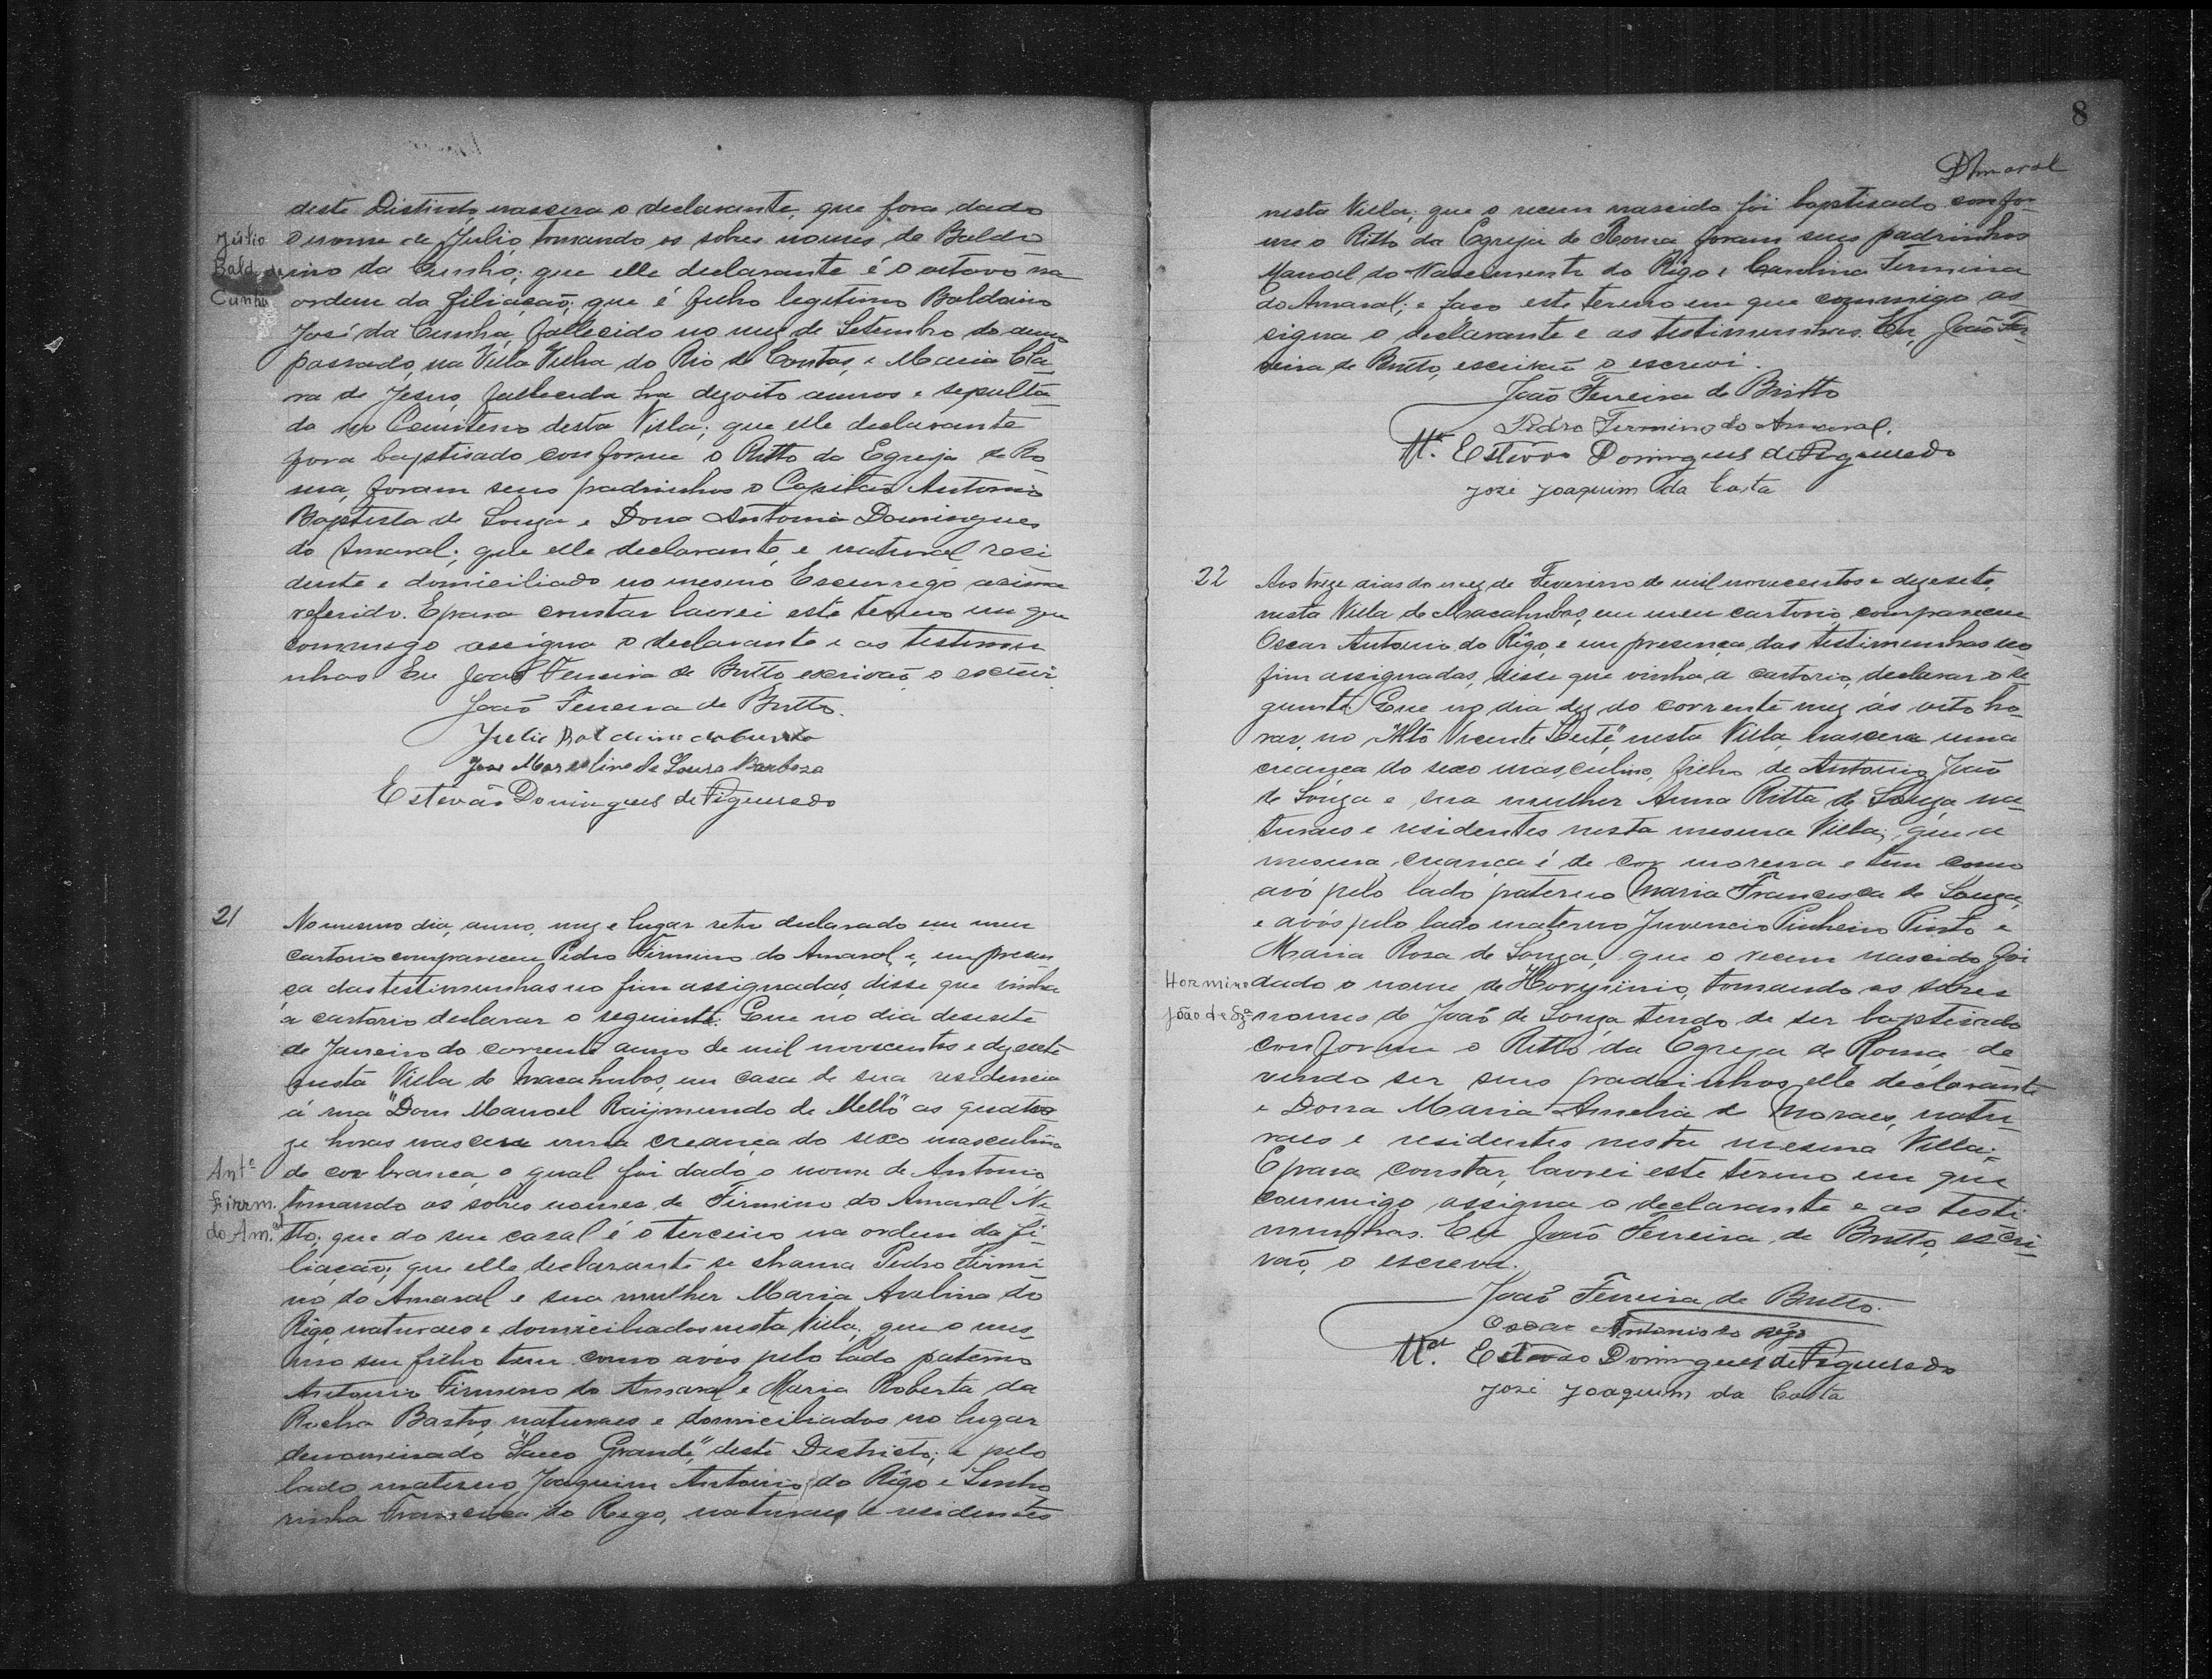 deste Districto, nascera o declarante, que fora dado
Júlio
o nome de Julio, tomando os sobres nomes de Baldo
Bald. da
ino da Cunha; que elle declarante é o oitavo na
Cunha
ordem da filiação; que é filho legitimo Baldoino
José da Cunha, fallecido no mez de Setembro do anno
passado, na Villa Velha do Rio de Contas, e Maria Cla-
ra de Jesus, fallecida ha dezoito annos e sepulta-
da no Cemiterio desta Villa; que elle declarante
fora baptisado conforme o Ritto da Egreja de Ro
ma, foram seus padrinhos o Capitão Antonio
Baptista de Souza e Dona Antonia Domingues
do Amaral; que elle declarante, e natural resi
dente e domiciliado no mesmo Escurrego acima
referido. E para constar lavrei este termo em que
commigo assigna o declarante e as testimu
nhas Eu João Ferreira de Britto escrivão o escrevi
João Ferreira de Britto.
Julio Baldoino da Cunha
José Marcolino de Souza Barboza
Estevão Domingues de Figueredo
21
No mesmo dia, anno, mez e lugar retro declarado em meu
cartorio compareceu Pedro Firmino do Amaral e, em presen-
ça das testimunhas no fim assignadas, disse que vinha
a cartorio declarar o seguinte: Que no dia desesete
de Janeiro do corrente anno de mil novecentos e dezesete
nesta Villa de Macahubas, em casa de sua residencia
á rua "Dom Manoel Raymundo de Mello" as quator
ze horas nascera uma creança do sexo masculino
Antº
de cor branca, o qual foi dado o nome de Antonio,
Firrm.
tomando os sobres nomes de Firmino do Amaral Ne
do Am.al
tto; que do seu casal é o terceiro na ordem da fi-
liação; que elle declarante se chama Pedro Firmi-
no do Amaral e sua mulher Maria Avelina do
Rêgo, naturaes e domiciliados nesta Villa; que o mes-
mo seu filho tem como avós pelo lado paterno
Antonio Firmino do Amaral e Maria Roberta da
Rocha Bastos, naturaes e domiciliados no lugar
denominado "Sacco Grande," deste Districto; e pelo
lado materno Joaquim Antonio do Rêgo e Senho
rinha Francisca do Rego, naturaes e residentes
8
DAmaral
nesta Villa; que o recem nascido foi baptisado confor-
me o Ritto da Egreja de Roma foram seus padrinhos
Manoel do Nascimento do Rêgo e Carolina Firmina
do Amaral; e faço este termo em que commigo as-
signa o declarante e as testimunhas. Eu, João Fer-
reira de Britto, escrivão o escrevi.
João Ferreira de Britto
Pedro Firmino do Amaral.
Estevão Domingues de Figueredo
José Joaquim da Costa
22
Aos treze dias do mez de Fevereiro de mil novecentos e dezesete,
nesta Villa de Macahubas, em meu cartorio, compareceu
Oscar Antonio do Rêgo, e em presença das testimunhas no
fim assignadas, disse que vinha a cartorio, declarar o se
guinte: Que no dia dez do corrente mez ás oito ho-
ras, no "Alto Vicente Leite," nesta Villa, nascera uma
creança do sexo masculino, filho de Antonio João
de Souza e sua mulher Anna Ritta de Souza, na-
turaes e residentes nesta mesma Villa; que a
mesma creança é de cor morena e tem como
avó pelo lado paterno Maria Francisca de Souza,
e avós pelo lado materno Juvencio Pinheiro Pinto e
Maria Rosa de Souza, que o recem nascido foi
Hormino
dado o nome de Hormino, tomando os sobres
João de Sza
nomes de João de Souza tendo de ser baptisado
conforme o Ritto da Egreja de Roma, de-
vendo ser seus padrinhos elle declarante
e Dona Maria Amelia de Moraes, natu-
raes e residentes nesta mesma Villa;
E para constar, lavrei este termo em que
commigo assigna o declarante e as testi
munhas. Eu João Ferreira de Britto, escri-
vão, o escrevi.
João Ferreira de Britto.
Oscar Antonio do Rêgo
Estevão Domingues de Figueredo
José Joaquim da Costa